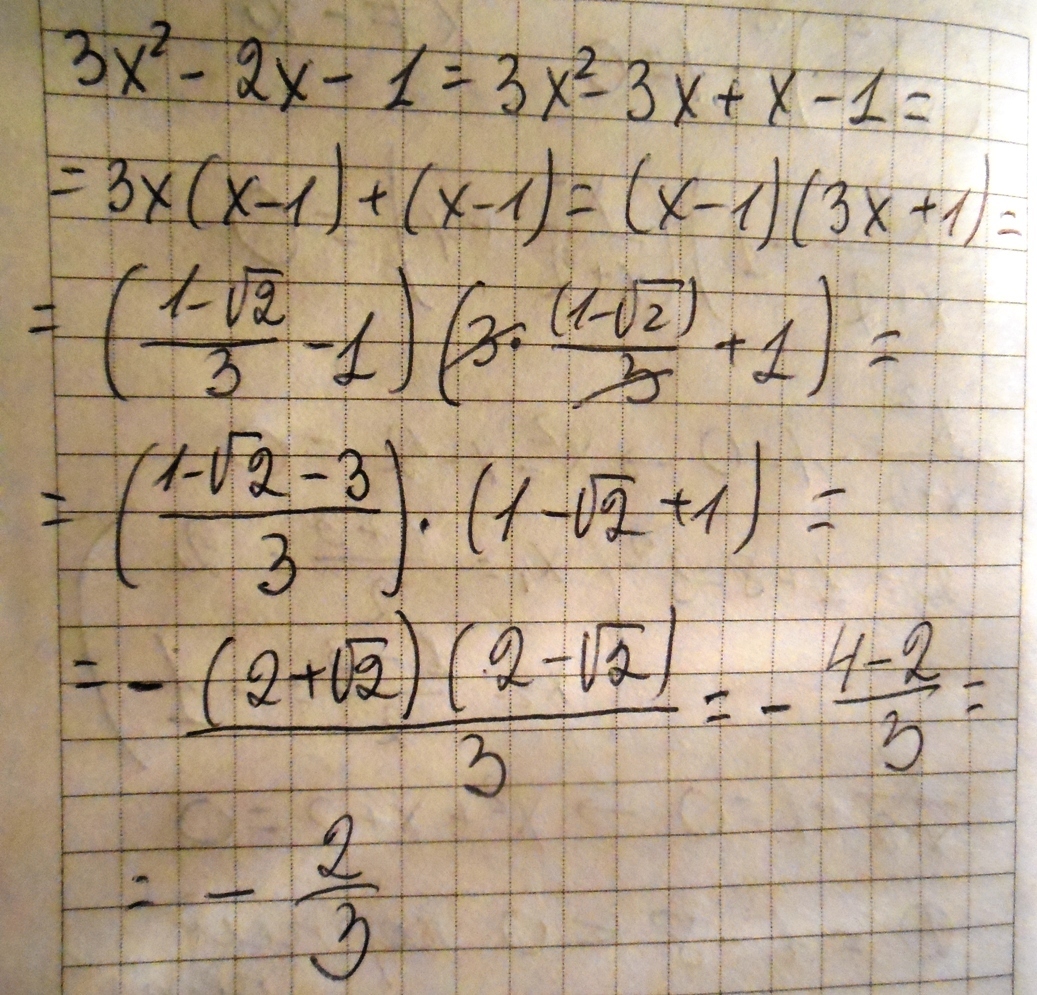 3x² - 2x - 1 = 3x² - 3x + x - 1 =
= 3x(x-1) + (x-1) = (x-1)(3x+1) =
= ((1-√2)/3 - 1) (3 · (1-√2)/3 + 1) =
= ((1-√2-3)/3) · (1-√2+1) =
= - (2+√2)(2-√2)/3 = - (4-2)/3 =
= - 2/3